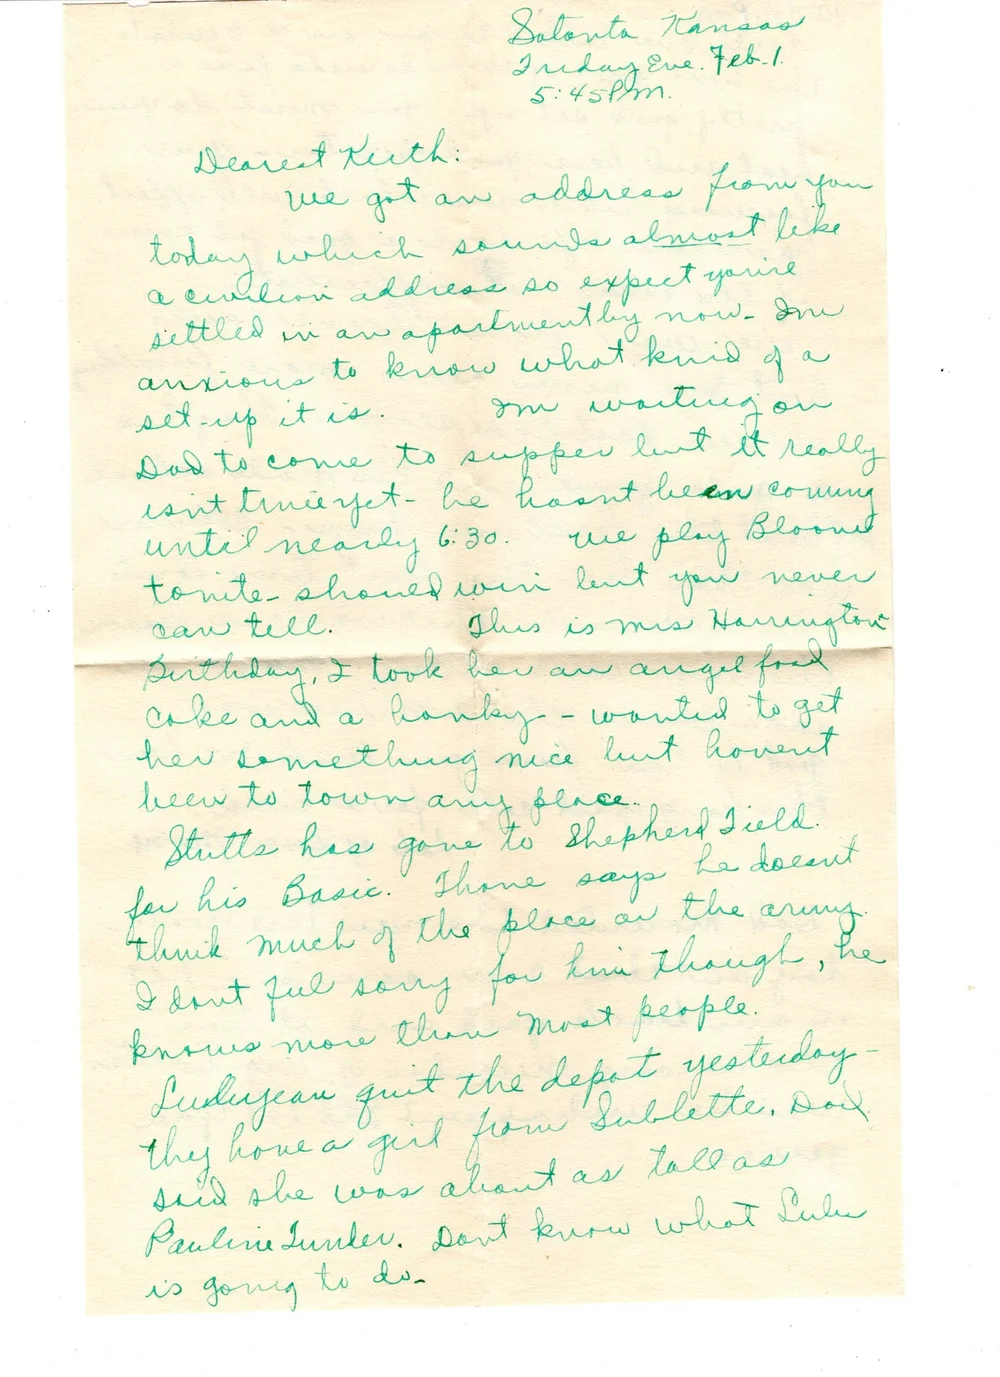 Satanta Kansas
Friday Eve. Feb. 1.
5:45 P.M.
Dearest Keith:
We got an address from you
today which sounds almost like
a civilian address so expect you're
settled in an apartment by now - Im
anxious to know what knid of a
set-up it is. Im waiting on
Dad to come to supper but it really
isn't time yet - he hasnt been coming
until nearly 6:30. We play Bloom
tonite - should win but you never
can tell. This is Mrs Harrington
Birthday, I took her an angel food
cake and a hanky - - wanted to get
her something nice but havent
been to town any place.
Stutts has gone to Shepherd Field.
for his Basic. Thane says he doesnt
think much of the place or the army.
I dont feel sorry for him though, he
knows more than most people.
Lulujean quit the depot yesterday -
they have a girl from Sublette. Dad
said she was about as tall as
Pauline Tunder. Dont know what Lulu
is going to do -